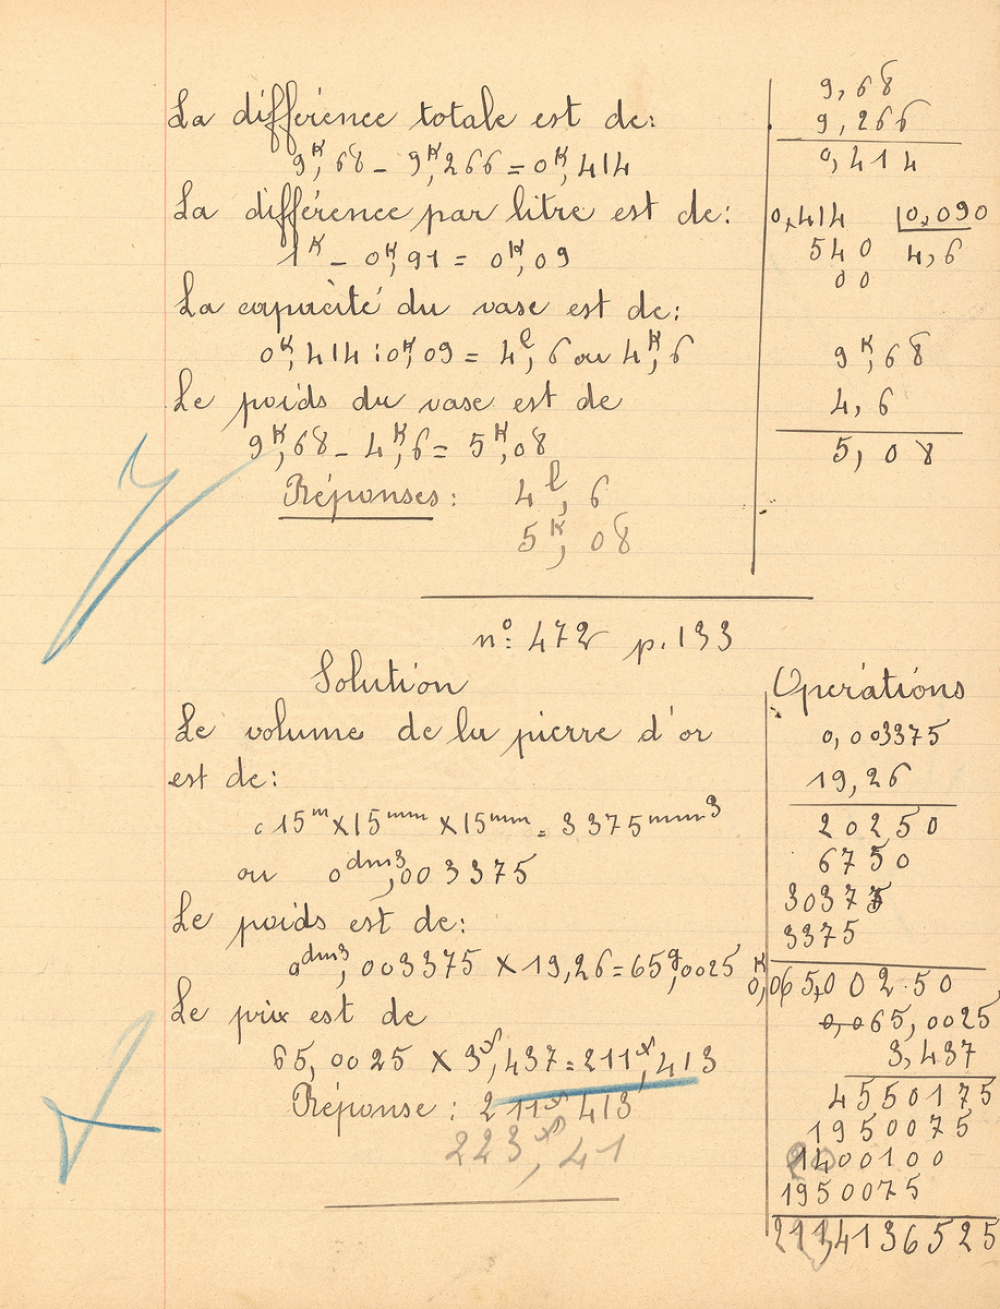 La différence totale est de:
9K,68 - 9K,266 = 0K,414
La différence par litre est de:
1K - 0K,91 = 0K,09
La capacité du vase est de:
0K,414 : 0K,09 = 4l,6 ou 4K,6
Le poids du vase est de
9K,68 - 4K,6 = 5K,08
Réponses: 4l,6
5K,08
9,68
9,266
0,414
0,414 0,090
540 4,6
00
9K,68
4,6
5,08
no: 472 p. 133
Solution
Le volume de la pierre d'or
est de:
15m x 15mm x 15mm = 3375mm3
ou 0dm3,003375
Le poids est de:
0dm3,003375 x 19,26 = 65g,0025
Le prix est de
65,0025 x 3f,437 = 211f,413
Réponse: 211f,413
223f,41
Opérations
0,003375
19,26
20250
6750
30375
3375
0K,065,00250
0,065,0025
3,437
4550175
1950075
1400100
1950075
2114136525